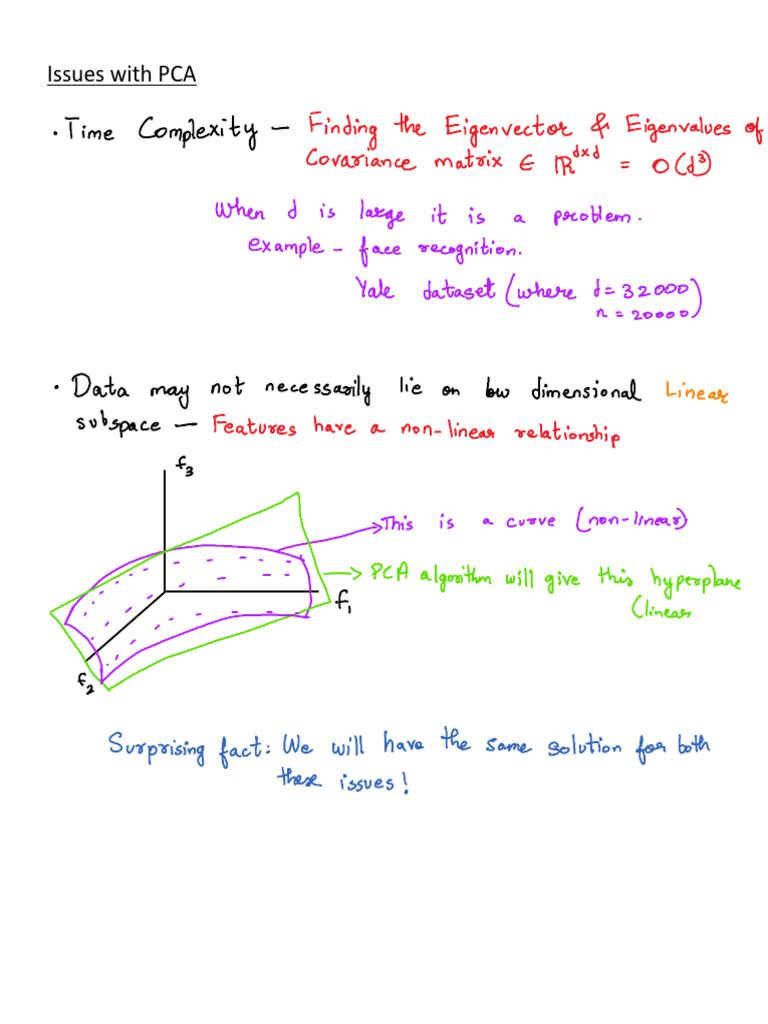 Issues with PCA
• Time Complexity — Finding the Eigenvector & Eigenvalues of
Covariance matrix ∈ ℝᵈˣᵈ = O(d³)
When d is large it is a problem.
example — face recognition.
Yale dataset (where d = 32000)
n = 20000)
• Data may not necessarily lie on low dimensional Linear
subspace — Features have a non-linear relationship
f₃
This is a curve (non-linear)
PCA algorithm will give this hyperplane
(linear
f₁
f₂
Surprising fact: We will have the same solution for both
these issues!